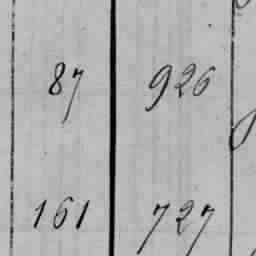 87 926
161 727